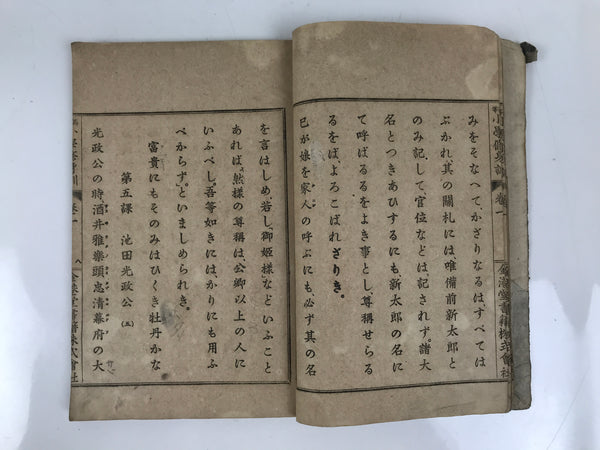 小學修身訓 卷一
みをそなへて、かざりなるはすべては
ぶかれ、其の關札には、唯備前新太郎と
のみ記して、官位などは、記されず。諸大
名とつきあひするにも、新太郎の名に
て呼ばるるをよき事とし、尊稱せらる
るをば、よろこばれざりき。
已が娘を家人の呼ぶにも、必ず其の名
を言はしめ、若し、御姫様などいふこと
あれば、然様の尊稱は、公卿以上の人に
いふべし。吾等如きには、かりにも用ふ
べからず、といましめられき。
富貴にもそのみはひくき牡丹かな
第五課 池田光政公(五)
光政公の時、酒井雅樂頭忠清幕府の大
卷一 八